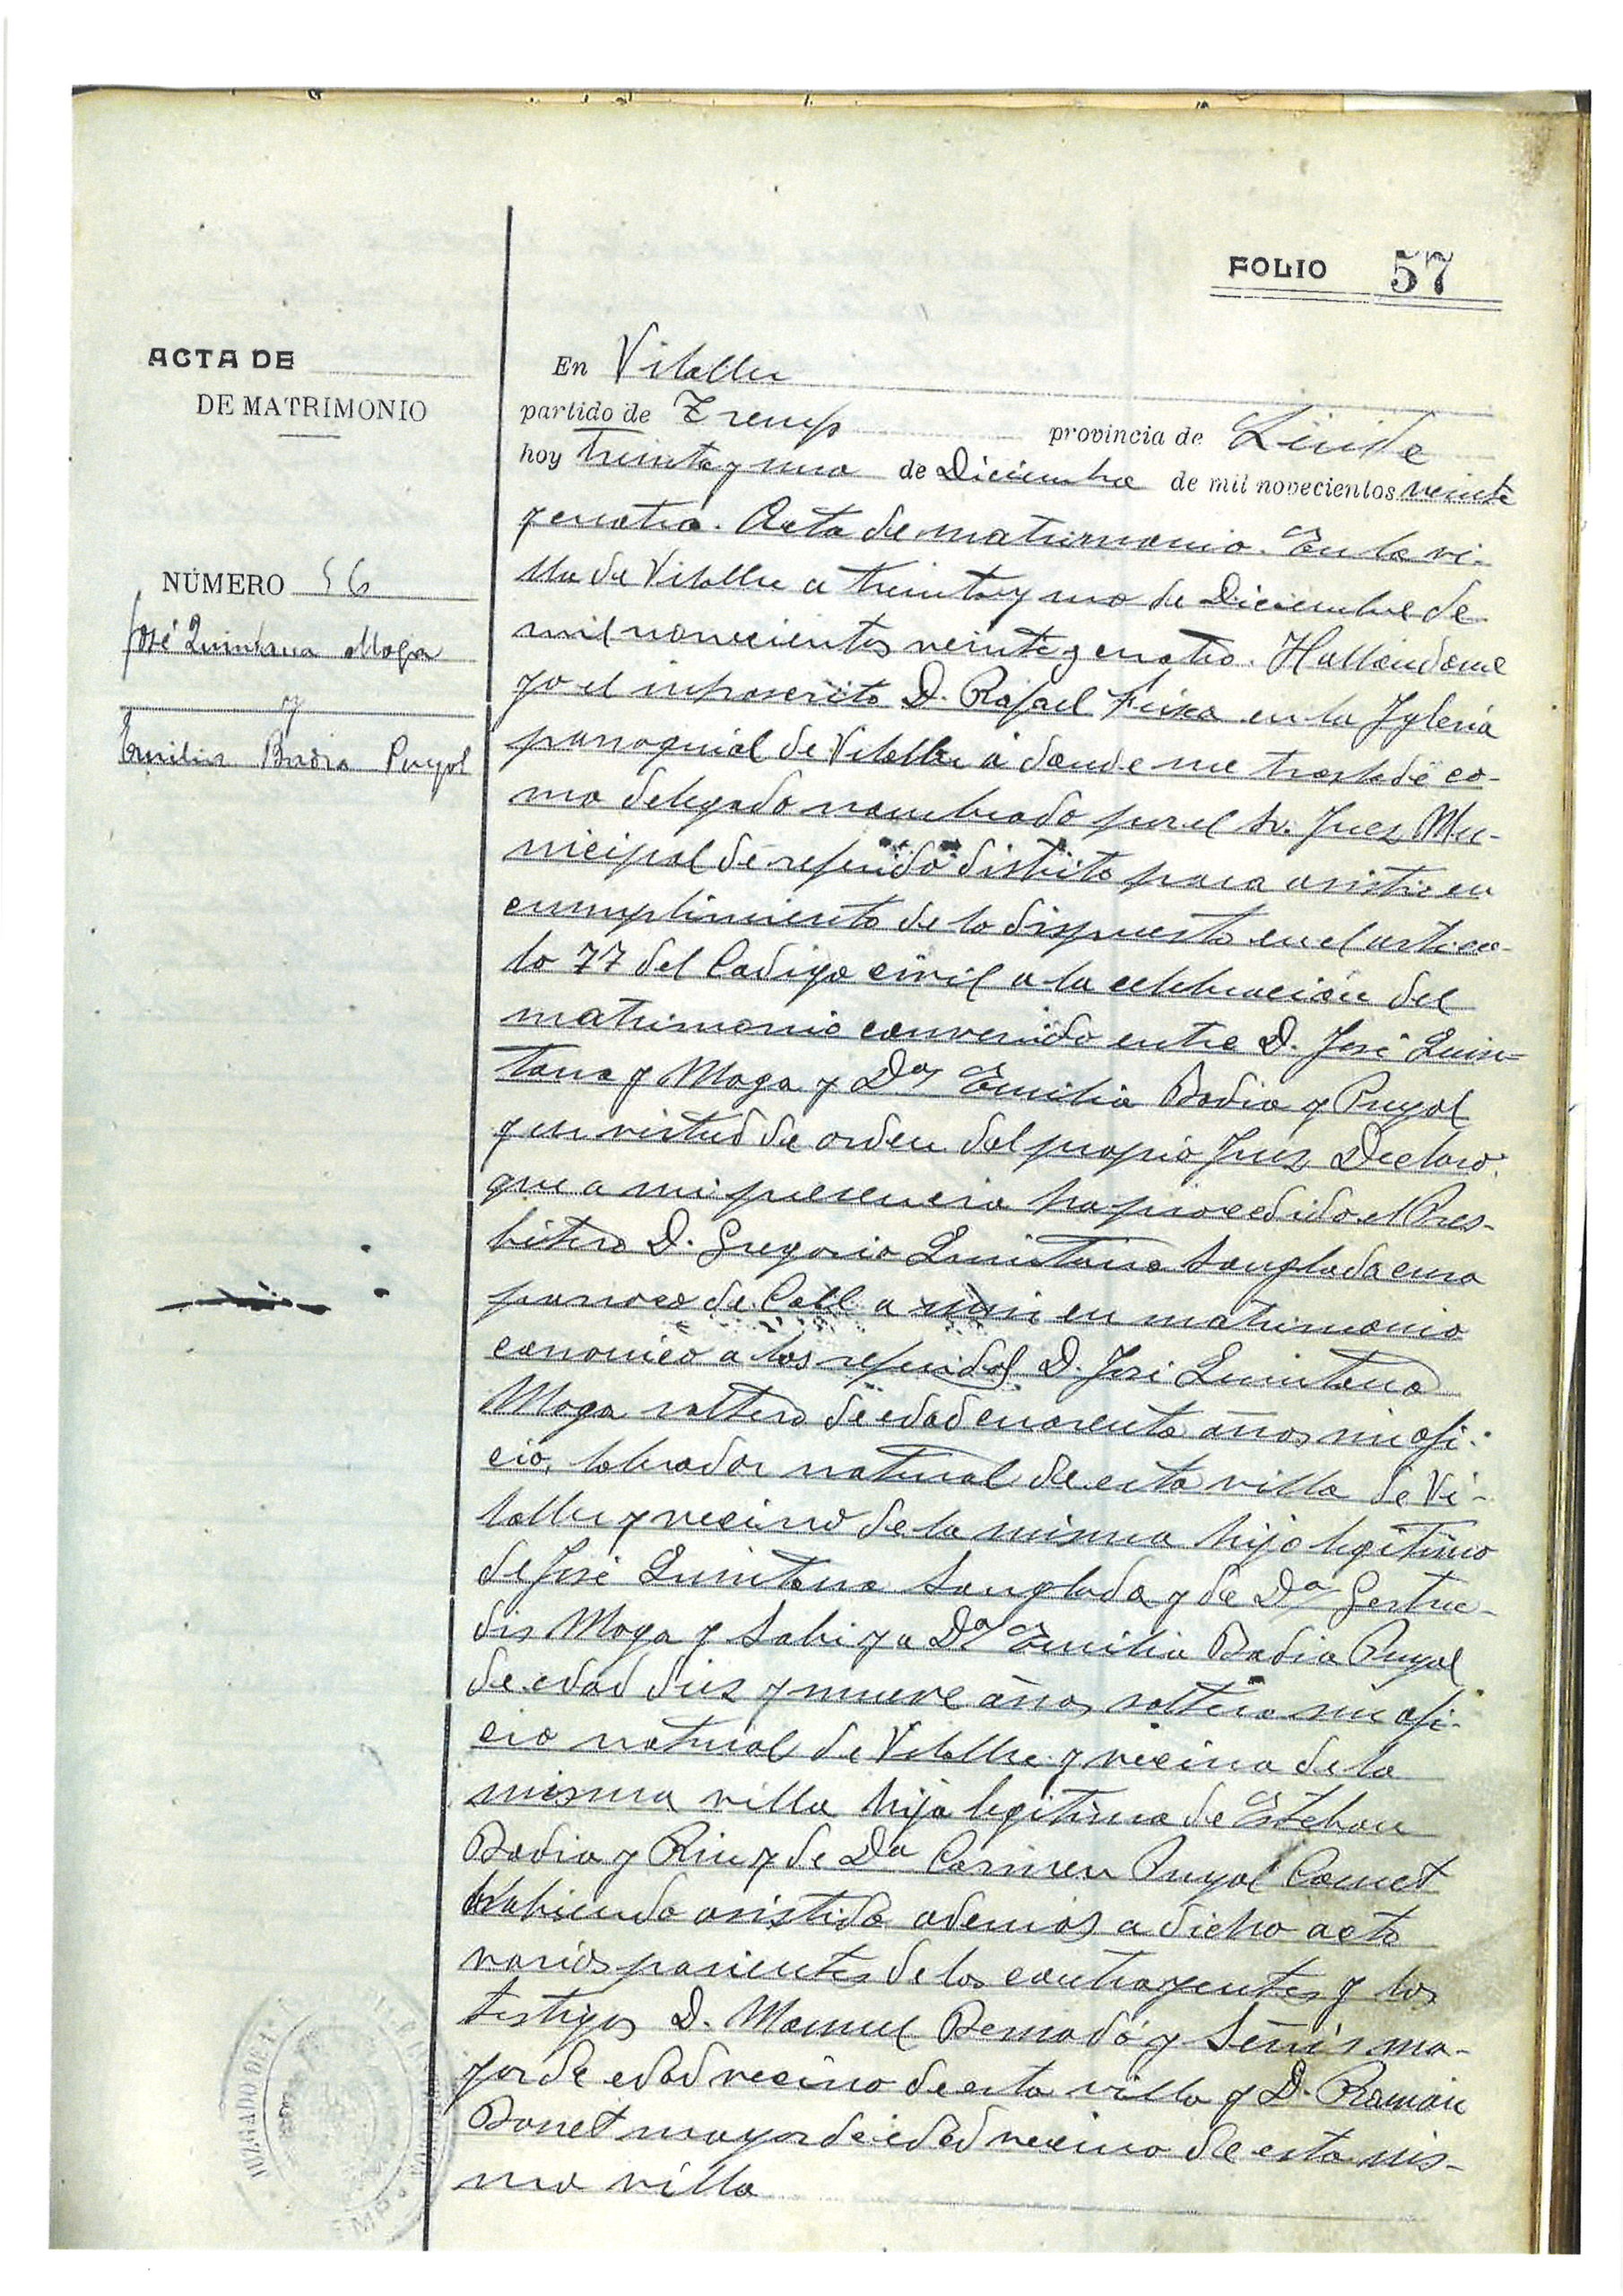 FOLIO 57
ACTA DE
DE MATRIMONIO
NÚMERO 56
José Quintana Moga
y
Emilia Badia Puyol
En Vilaller
partido de Tremp provincia de Lérida
hoy treinta y uno de Diciembre de mil novecientos veinte
y cuatro. Acta de matrimonio. En la vi-
lla de Vilaller a treinta y uno de Diciembre de
mil novecientos veinte y cuatro. Hallandome
yo el infrascrito D. Rafael Feixa en la Iglesia
parroquial de Vilaller a donde me trasladé co-
mo delegado nombrado por el Sr. Juez Mu-
nicipal de referido distrito para asistir en
cumplimiento de lo dispuesto en el articu-
lo 77 del Codigo civil a la celebración del
matrimonio convenido entre D. José Quin-
tana y Moga y Dª Emilia Badia y Puyol
y en virtud de orden del propio Juez Declaro:
que a mi presencia ha procedido el Pres-
bitero D. Gregorio Quintana Sanglada cura
parroco de Coll a unir en matrimonio
canonico a los referidos D. José Quintana
Moga soltero de edad cuarenta años su ofi-
cio, labrador natural de esta villa de Vi-
laller y vecino de la misma hijo legitimo
de José Quintana Sanglada y de Dª Gertru-
dis Moga y a Dª Emilia Badia Puyol
de edad diez y nueve años soltera su ofi-
cio natural de Vilaller y vecina de la
misma villa hija legitima de Esteban
Badia y Riu y de Dª Carmen Puyol Comet
Habiendo asistido además a dicho acto
varios parientes de los contrayentes y los
testigos D. Manuel y ma-
yor de edad vecino de esta villa y D. Ramón
Bonet mayor de edad vecino de esta mis-
ma villa
JUZGADO